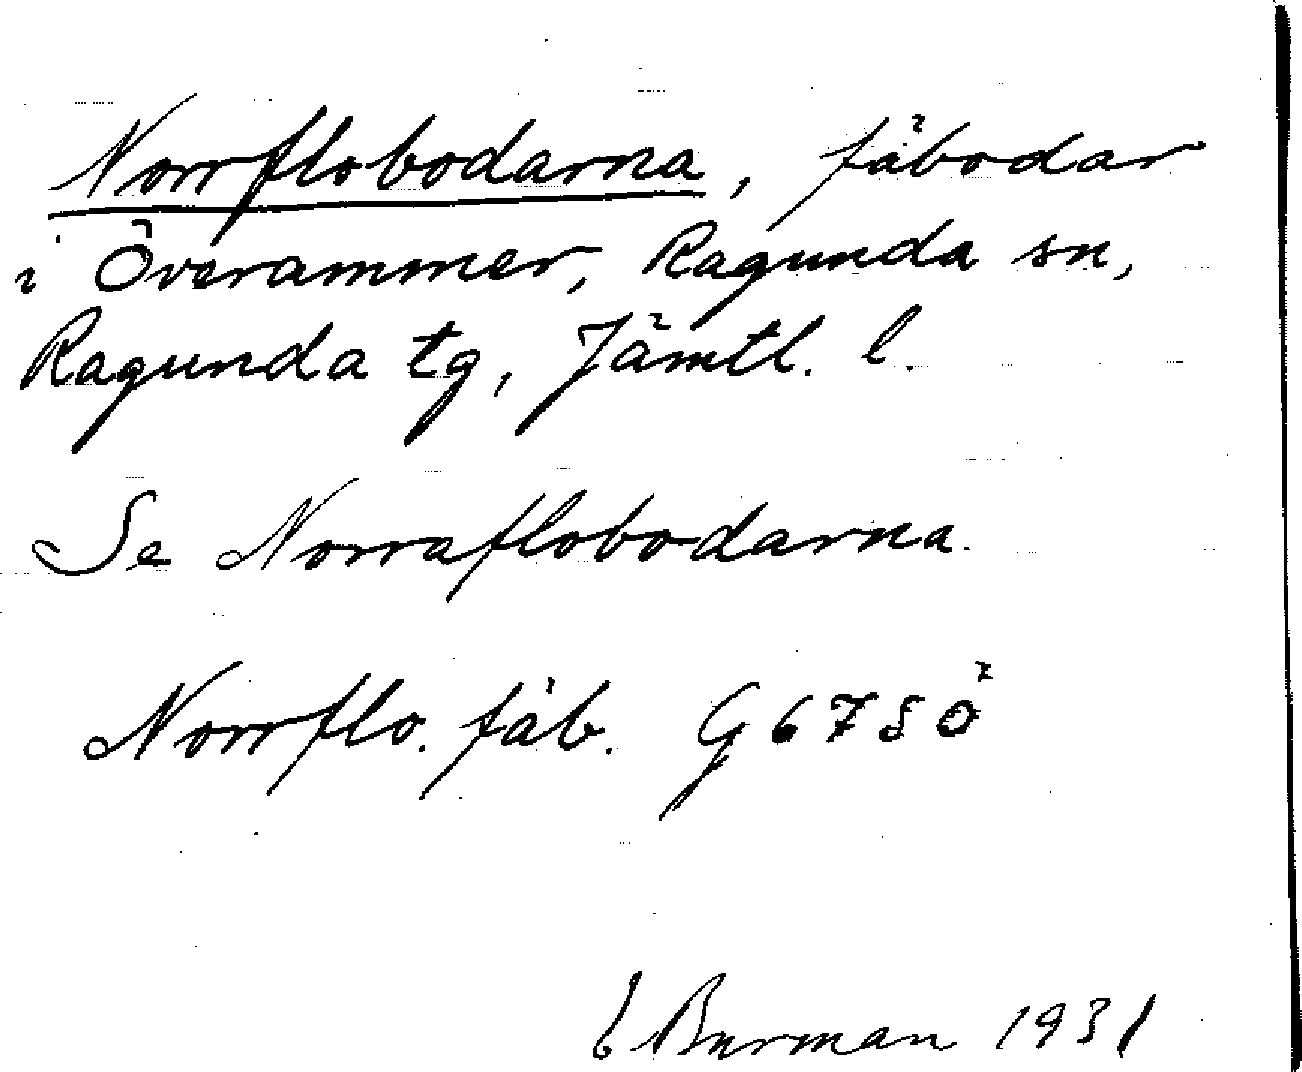 Norrflobodarna, fäbodar
i Överammer, Ragunda sn,
Ragunda tg, Jämtl. l.
Se Norraflobodarna.
Norrflo. fäb. G 67 SÖ
E Burman 1931